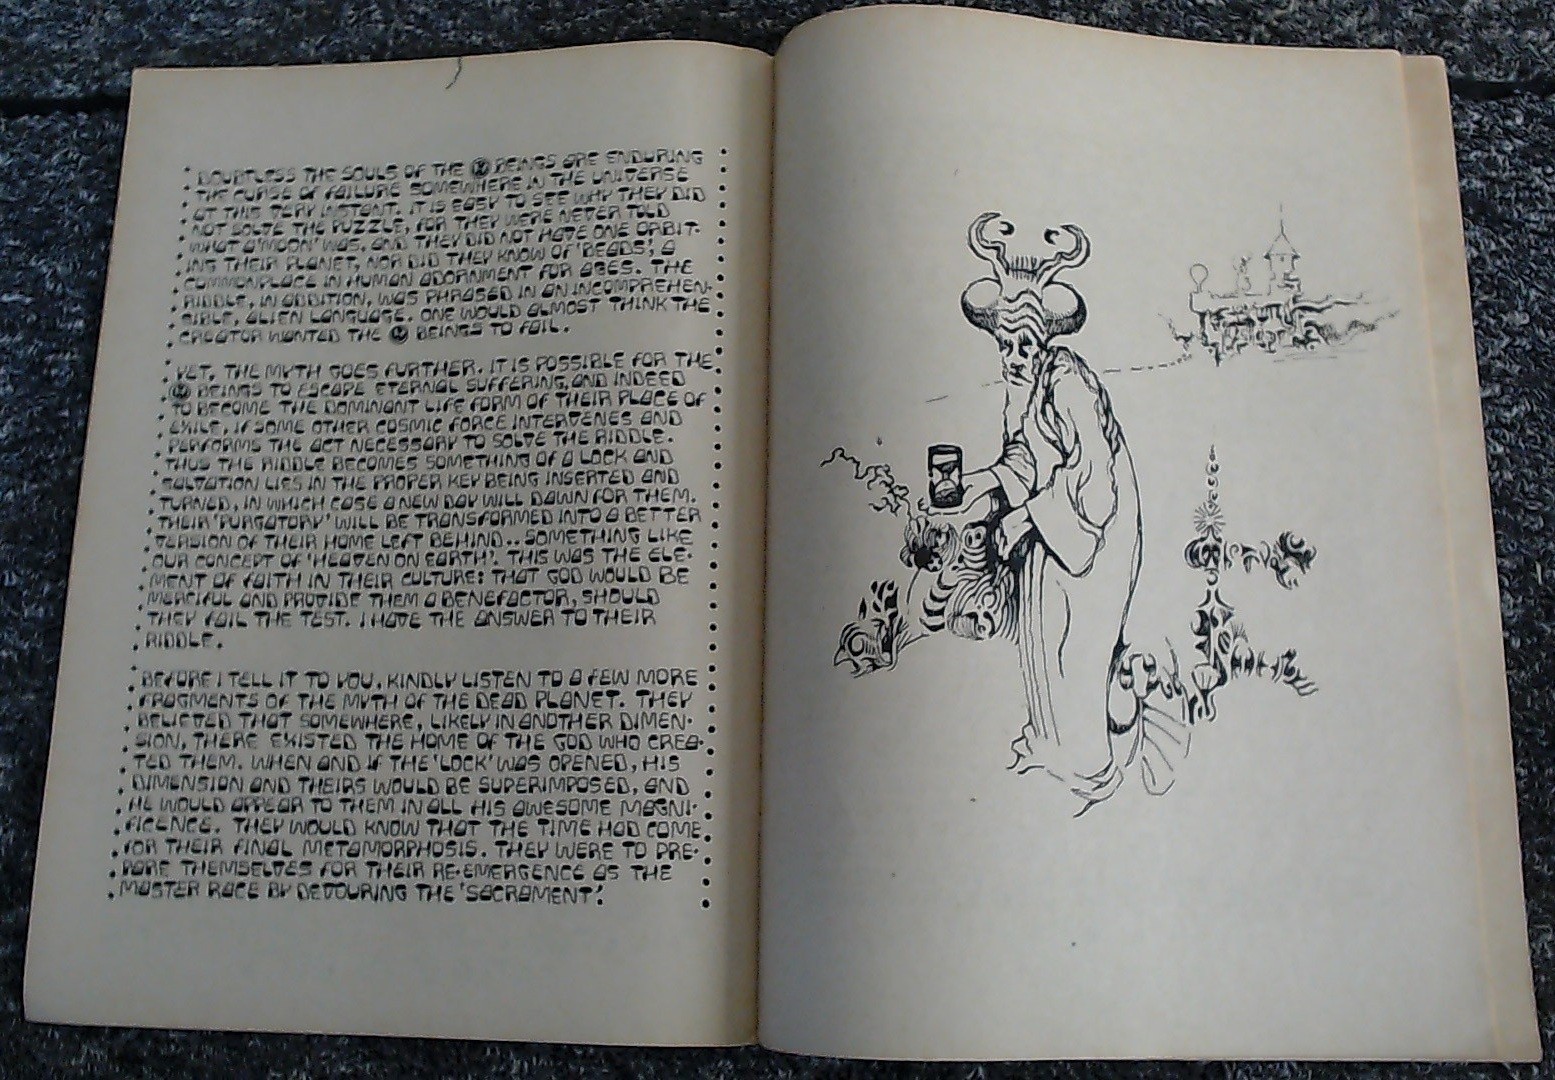 DOUBTLESS THE SOULS OF THE BEINGS ARE ENDURING
THE CURSE OF FAILURE SOMEWHERE IN THE UNIVERSE
AT THIS VERY INSTANT. IT IS EASY TO SEE WHY THEY DID
NOT SOLVE THE PUZZLE, FOR THEY WERE NEVER TOLD
WHAT A 'MOON' WAS, AND THEY DID NOT HAVE ONE ORBIT-
ING THEIR PLANET, NOR DID THEY KNOW OF 'BEADS', A
COMMONPLACE IN HUMAN ADORNMENT FOR AGES. THE
RIDDLE, IN ADDITION, WAS PHRASED IN AN INCOMPREHEN-
SIBLE, ALIEN LANGUAGE. ONE WOULD ALMOST THINK THE
CREATOR WANTED THE BEINGS TO FAIL.
YET, THE MYTH GOES FURTHER. IT IS POSSIBLE FOR THE
BEINGS TO ESCAPE ETERNAL SUFFERING, AND INDEED
TO BECOME THE DOMINANT LIFE FORM OF THEIR PLACE OF
EXILE, IF SOME OTHER COSMIC FORCE INTERVENES AND
PERFORMS THE ACT NECESSARY TO SOLVE THE RIDDLE.
THUS THE RIDDLE BECOMES SOMETHING OF A LOCK AND
SALVATION LIES IN THE PROPER KEY BEING INSERTED AND
TURNED, IN WHICH CASE A NEW DAY WILL DAWN FOR THEM.
THEIR 'PURGATORY' WILL BE TRANSFORMED INTO A BETTER
VERSION OF THEIR HOME LEFT BEHIND.. SOMETHING LIKE
OUR CONCEPT OF 'HEAVEN ON EARTH'. THIS WAS THE ELE-
MENT OF FAITH IN THEIR CULTURE: THAT GOD WOULD BE
MERCIFUL AND PROVIDE THEM A BENEFACTOR, SHOULD
THEY FAIL THE TEST. I HAVE THE ANSWER TO THEIR
RIDDLE.
BEFORE I TELL IT TO YOU, KINDLY LISTEN TO A FEW MORE
FRAGMENTS OF THE MYTH OF THE DEAD PLANET. THEY
BELIEVED THAT SOMEWHERE, LIKELY IN ANOTHER DIMEN-
SION, THERE EXISTED THE HOME OF THE GOD WHO CREA-
TED THEM. WHEN AND IF THE 'LOCK' WAS OPENED, HIS
DIMENSION AND THEIRS WOULD BE SUPERIMPOSED, AND
HE WOULD APPEAR TO THEM IN ALL HIS AWESOME MAGNI-
FICENCE. THEY WOULD KNOW THAT THE TIME HAD COME
FOR THEIR FINAL METAMORPHOSIS. THEY WERE TO PRE-
PARE THEMSELVES FOR THEIR RE-EMERGENCE AS THE
MASTER RACE BY DEVOURING THE 'SACRAMENT'.